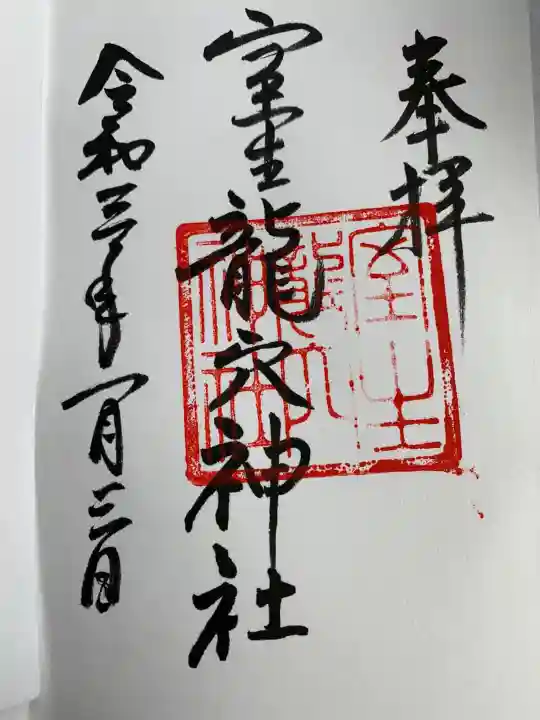 奉拝
室生龍穴神社
室生
龍穴
神社
令和三年一月三日